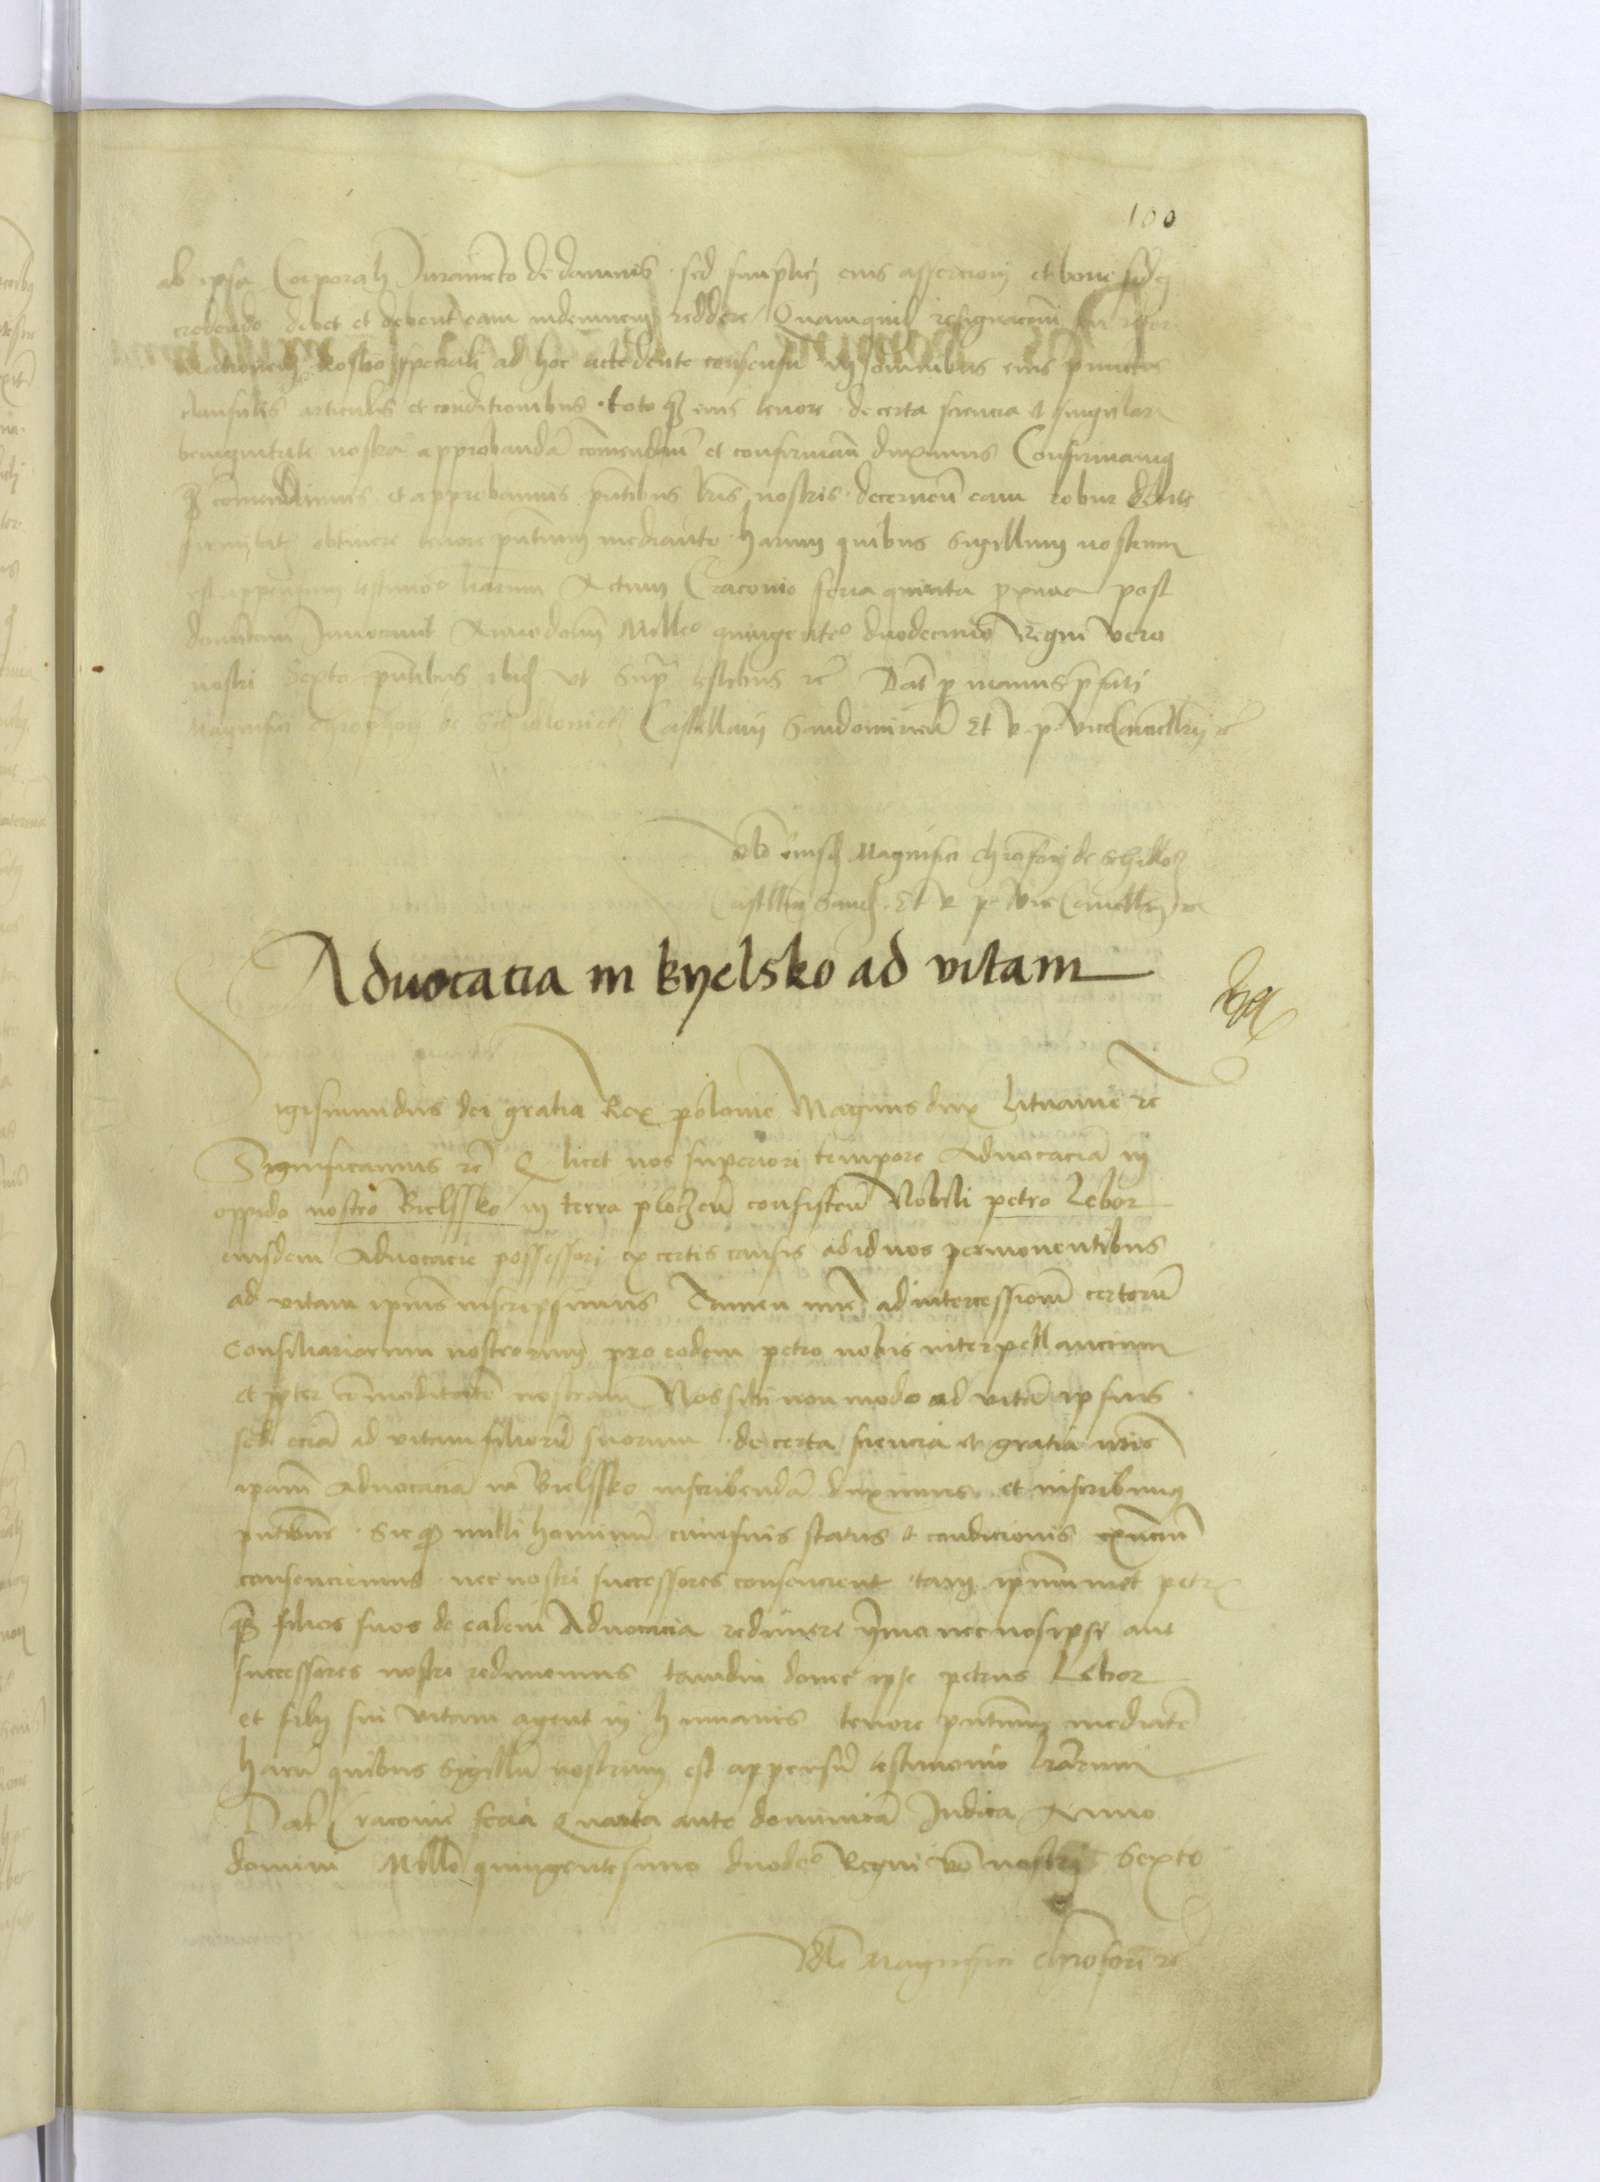 100
ab ipsa Corporali Juramēto de damnis sed simplici eius assercioni et bone fidei
credendo debet et debent eam indemnem reddere Quamquid resignacōem
nostro speciali ad hoc accedente consensu in omnibus eius punctis
clausulis articulis et conditionibus toto qʒ eius tenore de certa sciencia et singulari
benignitate nostra approbandā et confirmandā duximus Confirmamus
qʒ et approbamus pntibus lris nostris decernen̄ eam robur debite
firmitatis obtinere tenore pntium mediante harum quibus Sigillum nostrum
est appensum testimo° lrarum Actum Cracovie feria quinta proxima post
domīcam Invocavit Anno domī Mill° quingentes° duodecimo Regni vero
nostri Sexto pntibus ibidē ut Supra testibus rc̄ Dat̄ p̱ manus p̄fati
Magnifici Chrofori de Schidloviecz Castellani Sandomirien̄ Et R. p. Vicecancellarij rc̄
Rlō eiusdē Magnifici Chrofori de Schidlo°
Castellni Sand. Et R. p. Vicecancellarij rc̄
Advocacia in Byelsko ad vitam
Sigismundus dei gratia Rex polonie Magnus dux Lituanie rc̄
Significamus rc̄ Q licet nos superiori tempore Advocaciā in
oppido nostro Bielssko in terra ploczen̄ consisten̄ Nobili petro Lebor
eiusdem Advocacie possessori ex certis causis ad id nos permoventibus
ad vitam ipius inscripsimus Tamen nūc ad intercessionē certorū
Consiliariorum nostrorum pro eodem petro nobis interpellancium
et p̱pter cōmoditatē nostram Nos sibi non modo ad vitā ipsius
sed eciā ad vitam filiorū suorum de certa sciencia et gratia nris
ipam̄ Advocaciā in Bielssko inscribendā duximus et inscribimus
pntibus Sic qʒ nulli hominū cuiusvis status et condicionis exn̄cium
consenciemus nec nostri successores consencient tam ipummet petrū
qʒ filios suos de eadem Advocacia redimere ymo nec nos ipsi aut
successores nostri redimemus tamdiu donec ipse petrus Lebor
et filij sui vitam agent in humanis tenore pntium mediāte
harū quibus Sigillū nostrum est appensū testimonio lrarum
Dat̄ Cracovie feria Quarta ante dominicā Judica Anno
domini Mill̄o quingentesimo duode° Regni v̄o nostri Sexto
Rlō Magnifici Chrofori rc̄